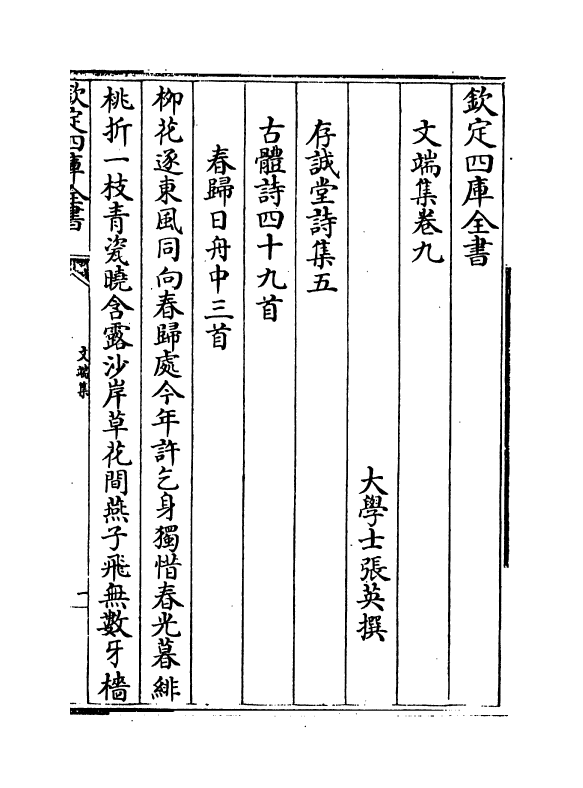 欽定四庫全書
文端集卷九
大學士張英撰
存誠堂詩集五
古體詩四十九首
春歸日舟中三首
柳花逐東風同向春歸處今年許乞身獨惜春光暮緋
桃折一枝青瓷曉含露沙岸草花間燕子飛無數牙檣
欽定四庫全書
文端集
一